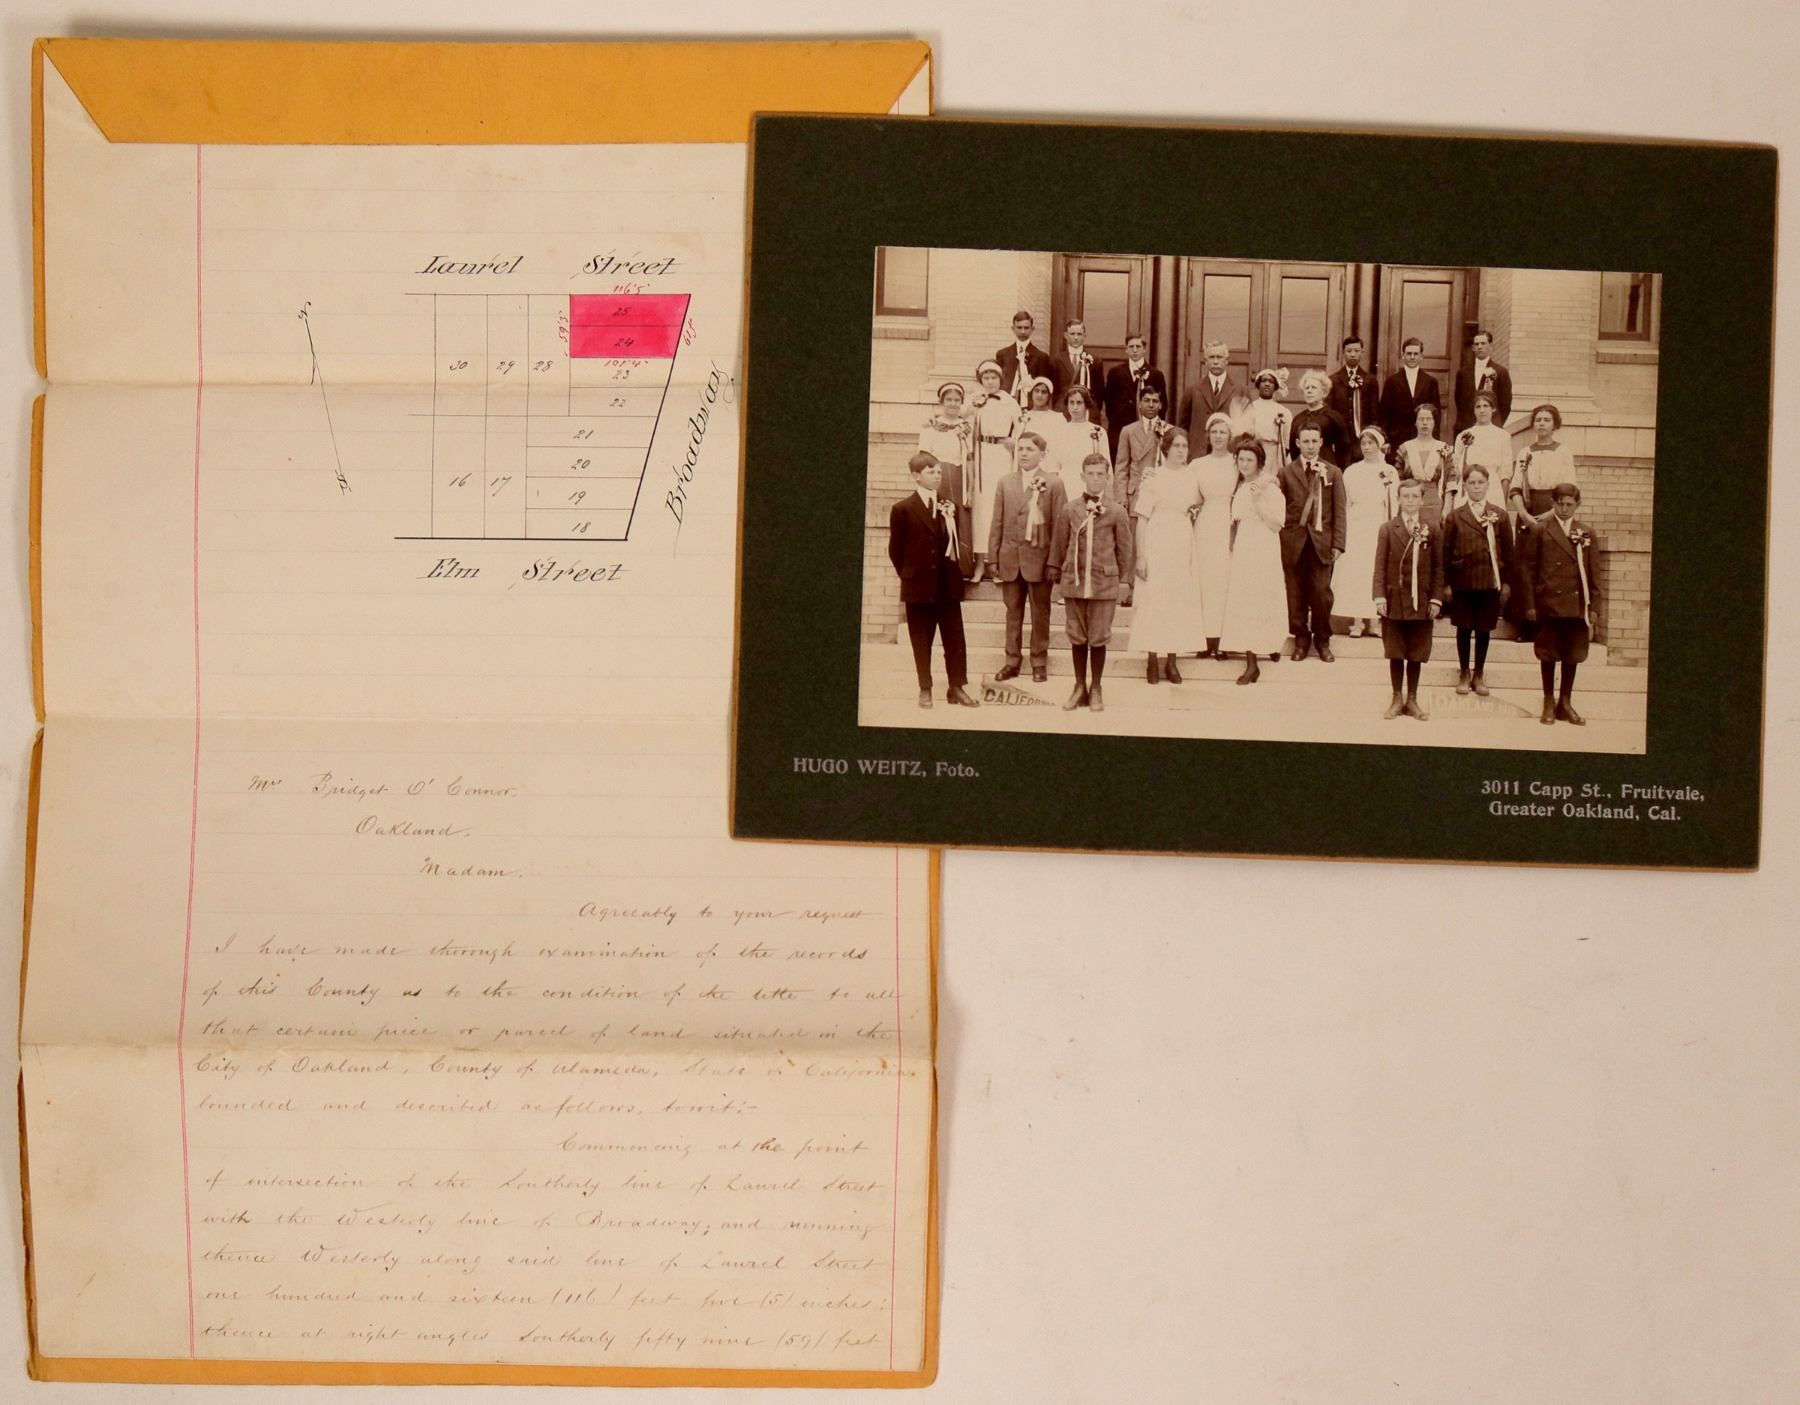 Laurel Street
116'5"
25
59'3"
61'5"
24
101'4"
30 29 28 23
22
21
20
16 17
19
18
Broadway
Elm Street
Mrs Bridget O'Connor.
Oakland.
Madam.
Agreeably to your request
I have made thorough examination of the records
of this County as to the condition of the title to all
that certain piece or parcel of land situated in the
City of Oakland, County of Alameda, State of California
bounded and described as follows, towit:-
Commencing at the point
of intersection of the Southerly line of Laurel Street
with the Westerly line of Broadway; and running
thence Westerly along said line of Laurel Street
one hundred and sixteen (116) feet five (5) inches;
thence at right angles Southerly fifty nine (59) feet
CALIFORNIA
OAKLAND
HUGO WEITZ, Foto.
3011 Capp St., Fruitvale,
Greater Oakland, Cal.